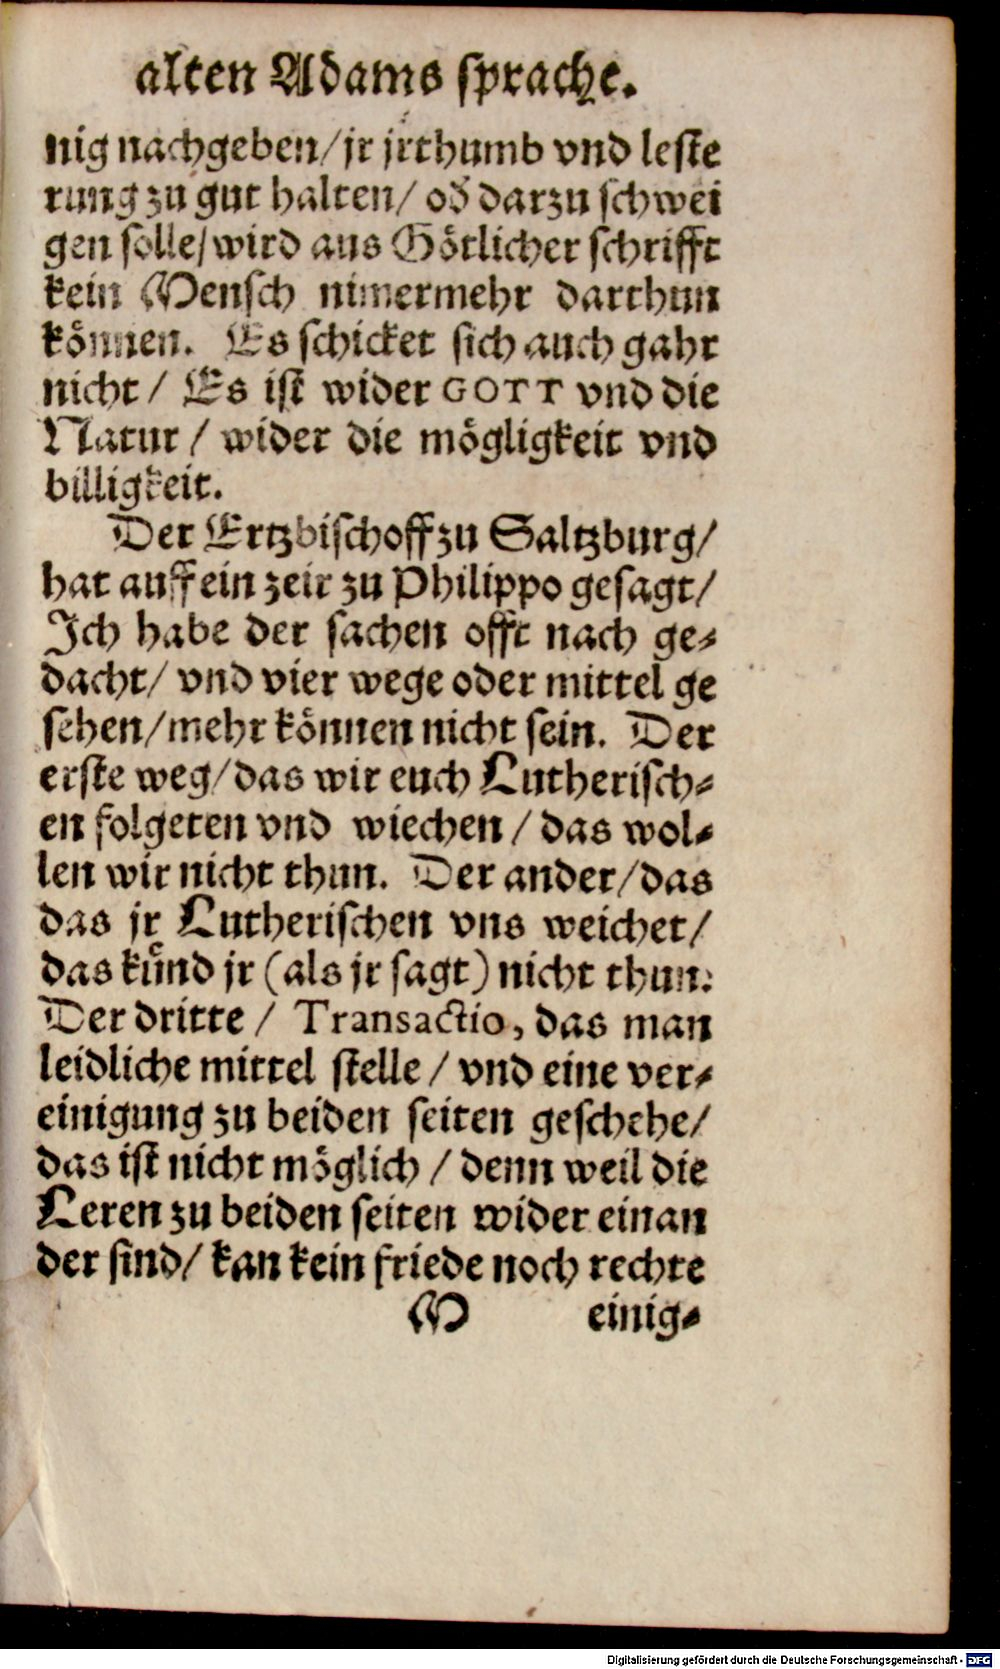 alten Adams sprache.
nig nachgeben/ jr jrthumb vnd leste
rung zu gut halten/ od̕ darzu schwei
gen solle/ wird aus Götlicher schrifft
kein Mensch nimermehr darthun
können. Es schicket sich auch gahr
nicht/ Es ist wider GOTT vnd die
Natur/ wider die mögligkeit vnd
billigkeit.
Der Ertzbischoff zu Saltzburg/
hat auff ein zeit zu Philippo gesagt/
Ich habe der sachen offt nach ge⸗
dacht/ vnd vier wege oder mittel ge
sehen/ mehr können nicht sein. Der
erste weg/ das wir euch Lutherisch⸗
en folgeten vnd wiechen/ das wol⸗
len wir nicht thun. Der ander/ das
das jr Lutherischen vns weichet/
das kuͤnd jr (als jr sagt) nicht thun:
Der dritte/ Transactio, das man
leidliche mittel stelle/ vnd eine ver⸗
einigung zu beiden seiten geschehe/
das ist nicht möglich/ denn weil die
Leren zu beiden seiten wider einan
der sind/ kan kein friede noch rechte
M einig⸗
Digitalisierung gefördert durch die Deutsche Forschungsgemeinschaft - DFG